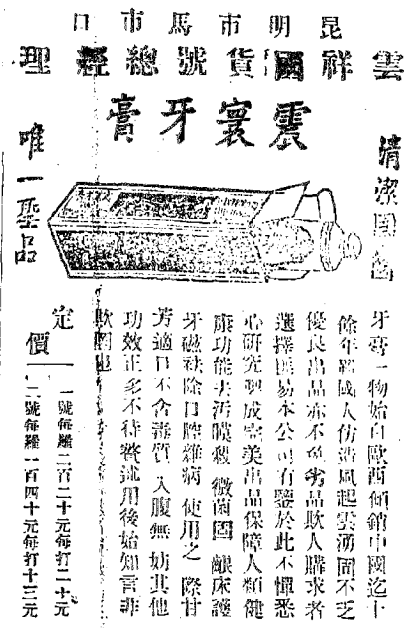 昆明市馬市口
雲祥國貨號總經理
震寰牙膏
清潔固齒
唯一聖品
牙膏一物始自歐西傾銷中國迄十
餘年經國人仿造風起雲湧固不乏
優良出品亦不免劣品欺人購求者
選擇匪易本公司有鑒於此不憚悉
心研究製成完美出品保障人類健
康功能去汚膜殺微菌固齦床護
牙磁祛除口腔雜病使用之際甘
芳適口不含毒質入腹無妨其他
功效正多不待贅述用後始知言非
欺罔也
定價
一號每羅二百二十元每打二十元
二號每羅一百四十元每打十三元